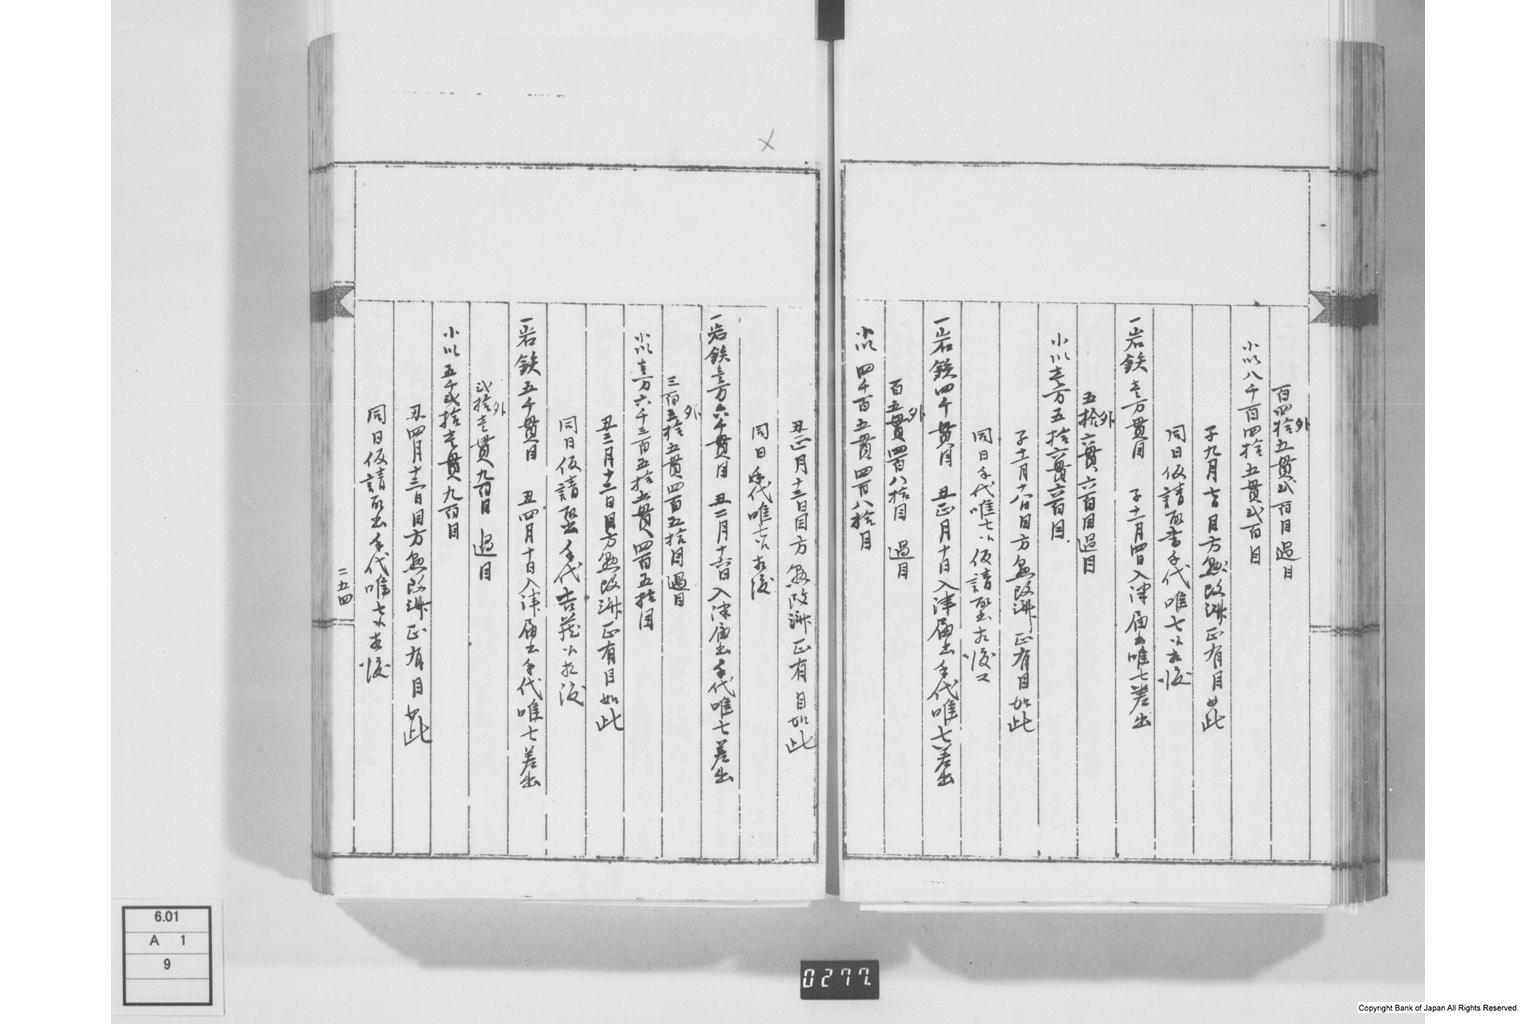 外
百四拾五貫弐百目過目
小以八千百四拾五貫弐百目
子九月 目方改 正有目如此
同日仮請取書手代唯七
一岩鉄壱万貫目 子十一月四日入津届出唯七差出
外
五拾六貫六百目過目
小以壱万五拾六貫六百目
子十一月十八日目方 改 正有目如此
同日手代唯七 仮請取出
一岩鉄四千貫目 丑正月十日入津届出手代唯七差出
外
百五貫四百八拾目 過目
小以四千百五貫四百八拾目
丑正月十三日目方 改 正有目如此
同日手代唯七
一岩鉄壱万六千貫目 丑二月十六日入津届出手代唯七差出
外
三百五拾五貫四百五拾目過目
小以壱万六千三百五拾五貫四百五拾目
丑三月十三日目方 改 正有目如此
同日仮請取出手代吉蔵
一岩鉄五千貫目 丑四月十日入津届出手代唯七差出
外
弐拾壱貫九百目 過目
小以五千弐拾壱貫九百目
丑四月十三日目方 改 正有目如此
同日仮請取出手代唯七
二五四
6.01
A 1
9
0277.
Copyright Bank of Japan All Rights Reserved.